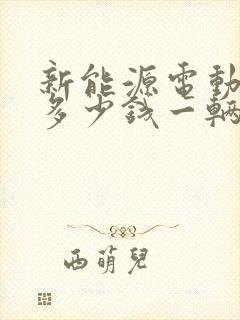 新能源電動
多少錢一輛
西萌兒